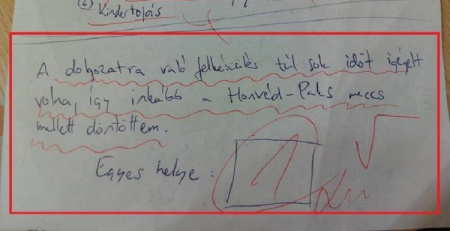 ② Kindertojás
A dolgozatra való felkészülés túl sok időt igényelt
volna, így inkább a Honvéd-Paks meccs
mellett döntöttem.
Egyes helye:
1